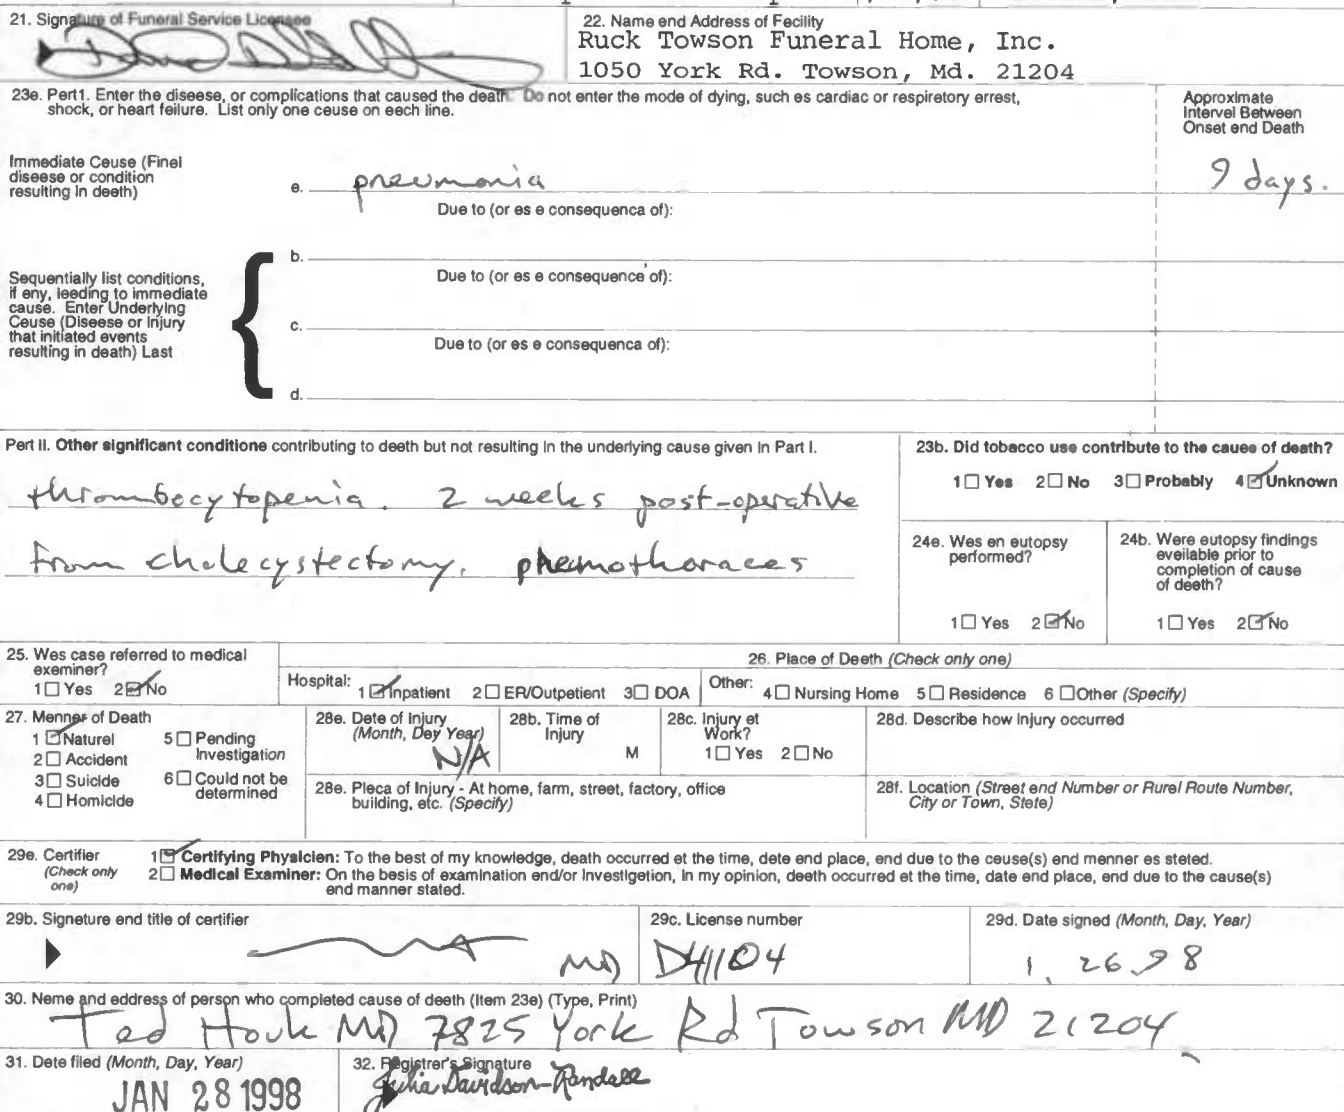 21. Signature of Funeral Service Licensee
22. Name end Address of Fecility
Ruck Towson Funeral Home, Inc.
1050 York Rd. Towson, Md. 21204
23e. Pert1. Enter the diseese, or complications that caused the deeth. Do not enter the mode of dying, such es cardiac or respiretory errest,
shock, or heert feilure. List only one ceuse on eech line.
Approximete
Intervel Between
Onset end Death
Immediate Ceuse (Finel
diseese or condition
resulting in deeth)
e. pneumonia
9 days.
Due to (or es e consequenca of):
b.
Due to (or es e consequence of):
Sequentially list conditions,
if eny, leeding to immediate
cause. Enter Underlying
Ceuse (Diseese or Injury
that initiated events
resulting in death) Last
c.
Due to (or es e consequenca of):
d.
Pert II. Other significant conditione contributing to death but not resulting in the underlying cause given in Part I.
thrombocytopenia. 2 weeks post-operative
from cholecystectomy.
23b. Did tobacco use contribute to the cauee of death?
1☐ Yes 2☐ No 3☐ Probably 4☑ Unknown
24e. Wes en eutopsy
performed?
1☐ Yes 2☑ No
24b. Were eutopsy findings
eveilable prior to
completion of cause
of deeth?
1☐ Yes 2☑ No
25. Wes case referred to medical
exeminer?
1☐ Yes 2☑ No
26. Place of Deeth (Check only one)
Hospital: 1☑ Inpatient 2☐ ER/Outpetient 3☐ DOA Other: 4☐ Nursing Home 5☐ Residence 6 ☐Other (Specify)
27. Menner of Death
1☑ Naturel 5☐ Pending
Investigation
2☐ Accident
3☐ Suicide 6☐ Could not be
determined
4☐ Homicide
28e. Dete of Injury
(Month, Dey Year)
N/A
28b. Time of
Injury
M
28c. Injury et
Work?
1☐ Yes 2☐ No
28d. Describe how Injury occurred
28e. Pleca of Injury - At home, farm, street, factory, office
building, etc. (Specify)
28f. Locetion (Street end Number or Rurel Route Number,
City or Town, Stete)
29e. Certifier
(Check only
one)
1☑ Certifying Physicien: To the best of my knowledge, death occurred et the time, dete end place, end due to the ceuse(s) end menner es steted.
2☐ Medical Exeminer: On the besis of examination end/or investigetion, in my opinion, deeth occurred et the time, date end place, end due to the cause(s)
end manner stated.
29b. Signeture end title of certifier
MD
29c. License number
D41104
29d. Date signed (Month, Day, Year)
1. 26.98
30. Neme and eddress of person who completed cause of deeth (Item 23e) (Type, Print)
Ted Houk MD 7825 York Rd Towson MD 21204
31. Dete filed (Month, Day, Year)
JAN 28 1998
32. Registrer's Signature
Julia Davidson-Randall